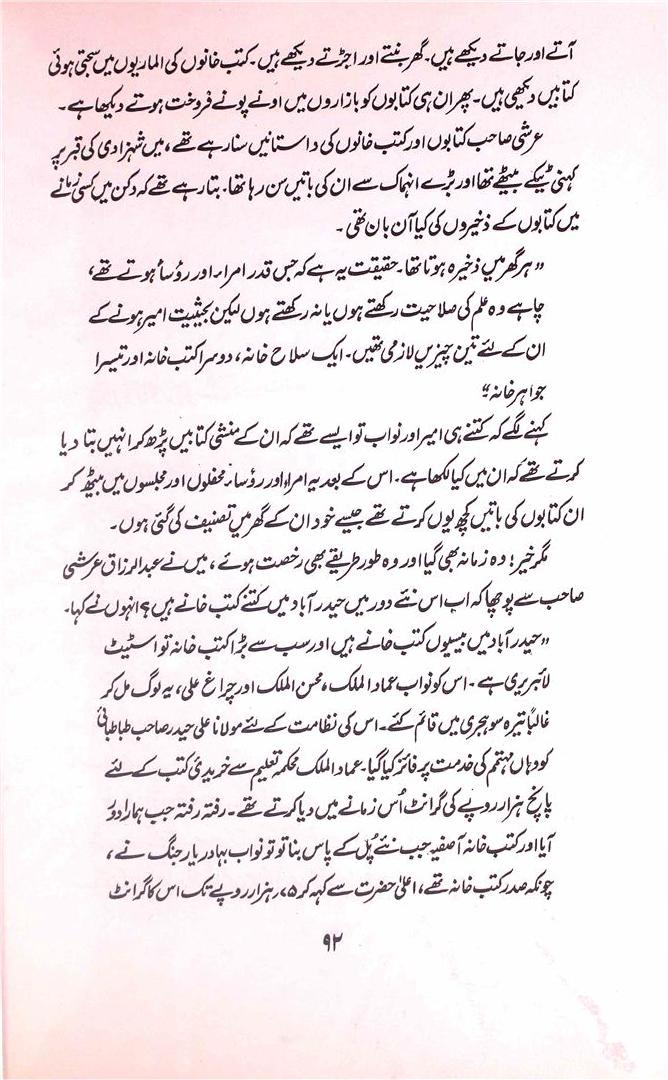 آتے اور جاتے دیکھے ہیں۔ گھر بنتے اور اجڑتے دیکھے ہیں۔ کتب خانوں کی الماریوں میں سجتی ہوئی
کتابیں دیکھی ہیں۔ پھر ان ہی کتابوں کو بازاروں میں اونے پونے فروخت ہوتے دیکھا ہے۔
عرشی صاحب کتابوں اور کتب خانوں کی داستانیں سنا رہے تھے، میں شہزادی کی قبر پر
کہنی ٹیکے بیٹھے تھا اور بڑے انہماک سے ان کی باتیں سن رہا تھا۔ بتا رہے تھے کہ دکن میں کسی زمانے
میں کتابوں کے ذخیروں کی کیا آن بان تھی۔
”ہر گھر میں ذخیرہ ہوتا تھا۔ حقیقت یہ ہے کہ جس قدر امراء اور رؤسا ہوتے تھے،
چاہے وہ علم کی صلاحیت رکھتے ہوں یا نہ رکھتے ہوں لیکن بحیثیت امیر ہونے کے
ان کے لئے تین چیزیں لازمی تھیں۔ ایک سلاح خانہ، دوسرا کتب خانہ اور تیسرا
جواہر خانہ“
کہنے لگے کہ کتنے ہی امیر اور نواب تو ایسے تھے کہ ان کے منشی کتابیں پڑھ کر انہیں بتا دیا
کرتے تھے کہ ان میں کیا لکھا ہے۔ اس کے بعد یہ امراء اور رؤساء محفلوں اور مجلسوں میں بیٹھ کر
ان کتابوں کی باتیں کچھ یوں کرتے تھے جیسے خود ان کے گھر میں تصنیف کی گئی ہوں۔
مگر خیر! وہ زمانہ بھی گیا اور وہ طور طریقے بھی رخصت ہوئے، میں نے عبدالرزاق عرشی
صاحب سے پوچھا کہ اب اس نئے دور میں حیدرآباد میں کتنے کتب خانے ہیں؟ انہوں نے کہا۔
”حیدرآباد میں بیسیوں کتب خانے ہیں اور سب سے بڑا کتب خانہ تو اسٹیٹ
لائبریری ہے۔ اس کو نواب عماد الملک، محسن الملک اور چراغ علی، یہ لوگ مل کر
غالباً تیرہ سو ہجری میں قائم کئے۔ اس کی نظامت کے لئے مولانا علی حیدر صاحب طباطبائی
کو وہاں مہتمم کی خدمت پر فائز کیا گیا۔ عماد الملک محکمہ تعلیم سے خریدیٔ کتب کے لئے
پانچ ہزار روپے کی گرانٹ اُس زمانے میں دیا کرتے تھے۔ رفتہ رفتہ جب ہمارا دور
آیا اور کتب خانہ آصفیہ جب نئے پُل کے پاس بنا تو تو نواب بہادر یار جنگ نے،
چونکہ صدر کتب خانہ تھے، اعلیٰ حضرت سے کہہ کر ۷۵ ہزار روپے تک اس کا گرانٹ
۹۲